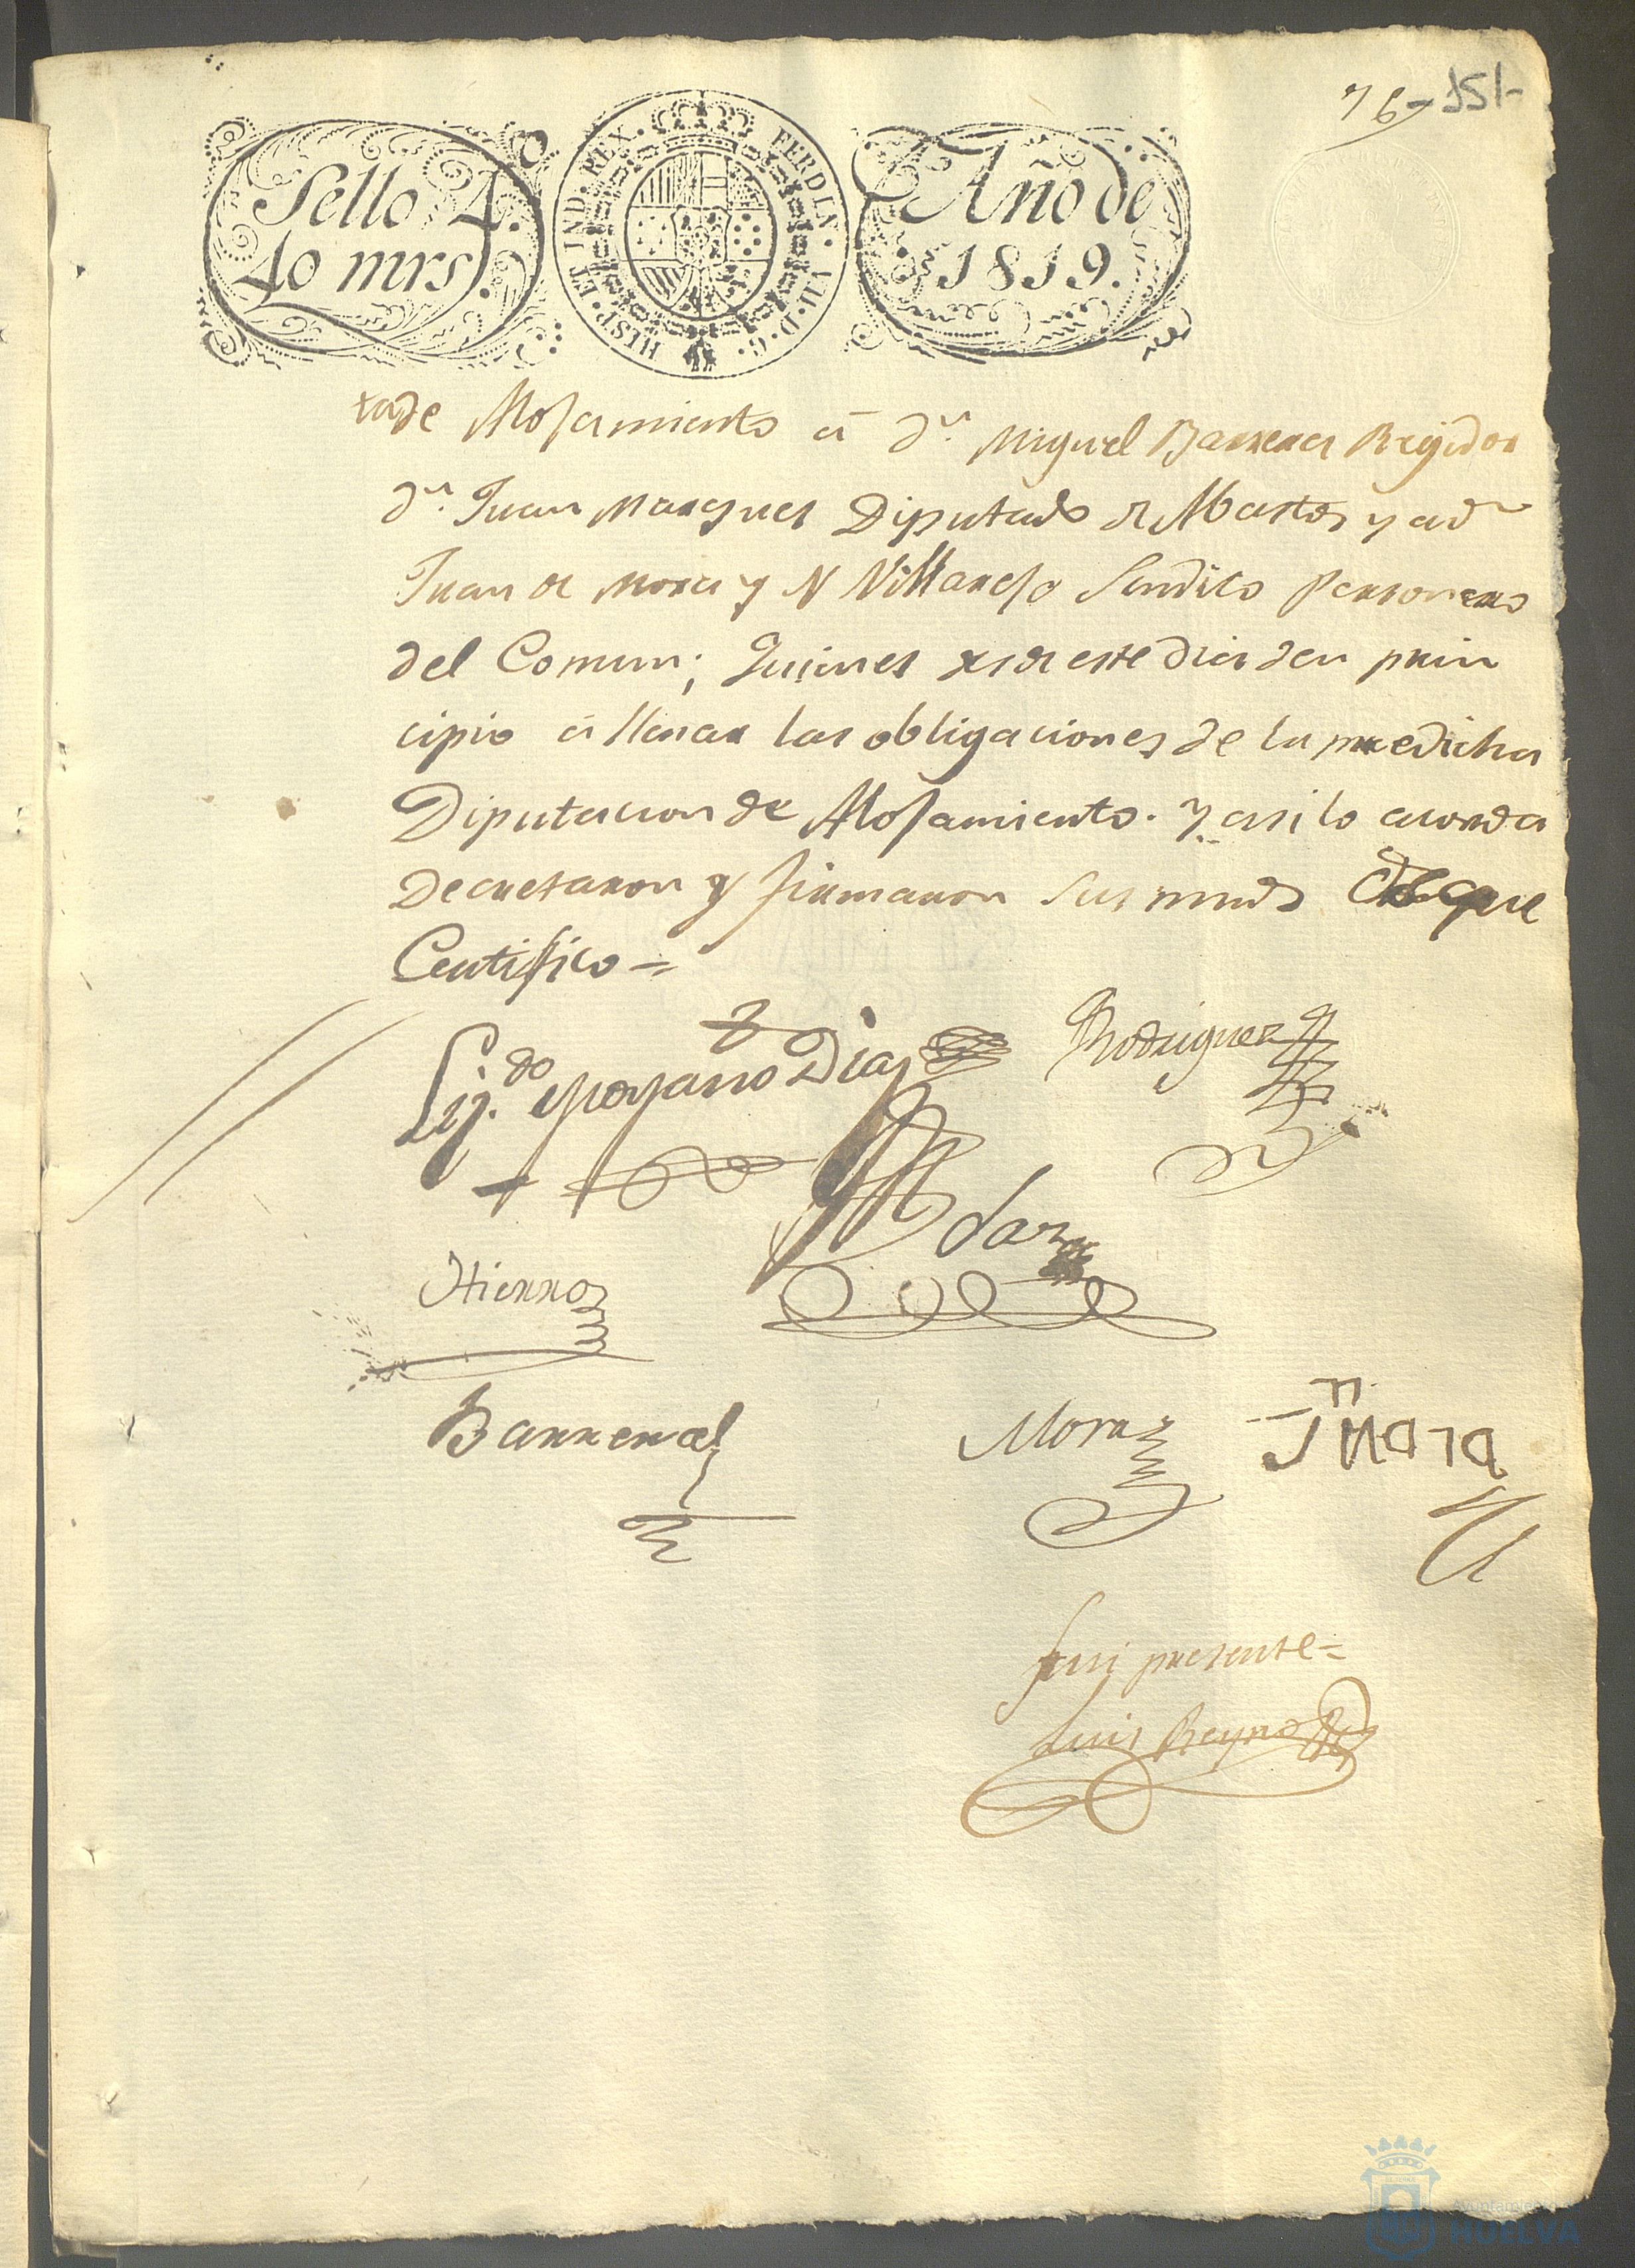 76- 151-
Sello 4.
40 mrs.
HISP. ET IND. REX. FERDIN. VII. D. G.
Año de
1819.
ra de Alojamiento á Dn. Miguel Barrera Regidor
Dn. Juan Marques Diputado de Abastos y a Dn
Juan de Mora y N Villarejo Sindico Personero
del Comun; Quienes desde este dia den prin
cipio á llenar las obligaciones de la predicha
Diputacion de Alojamiento. Y asi lo acorda
Decretaron y firmaron sus mrds de que
Certifico =
Lizdo. Moyano Diaz
Rodriguez
Hierro
Barrera
Mora
fui presente =
Luis Reyno
Ayuntamiento
HUELVA